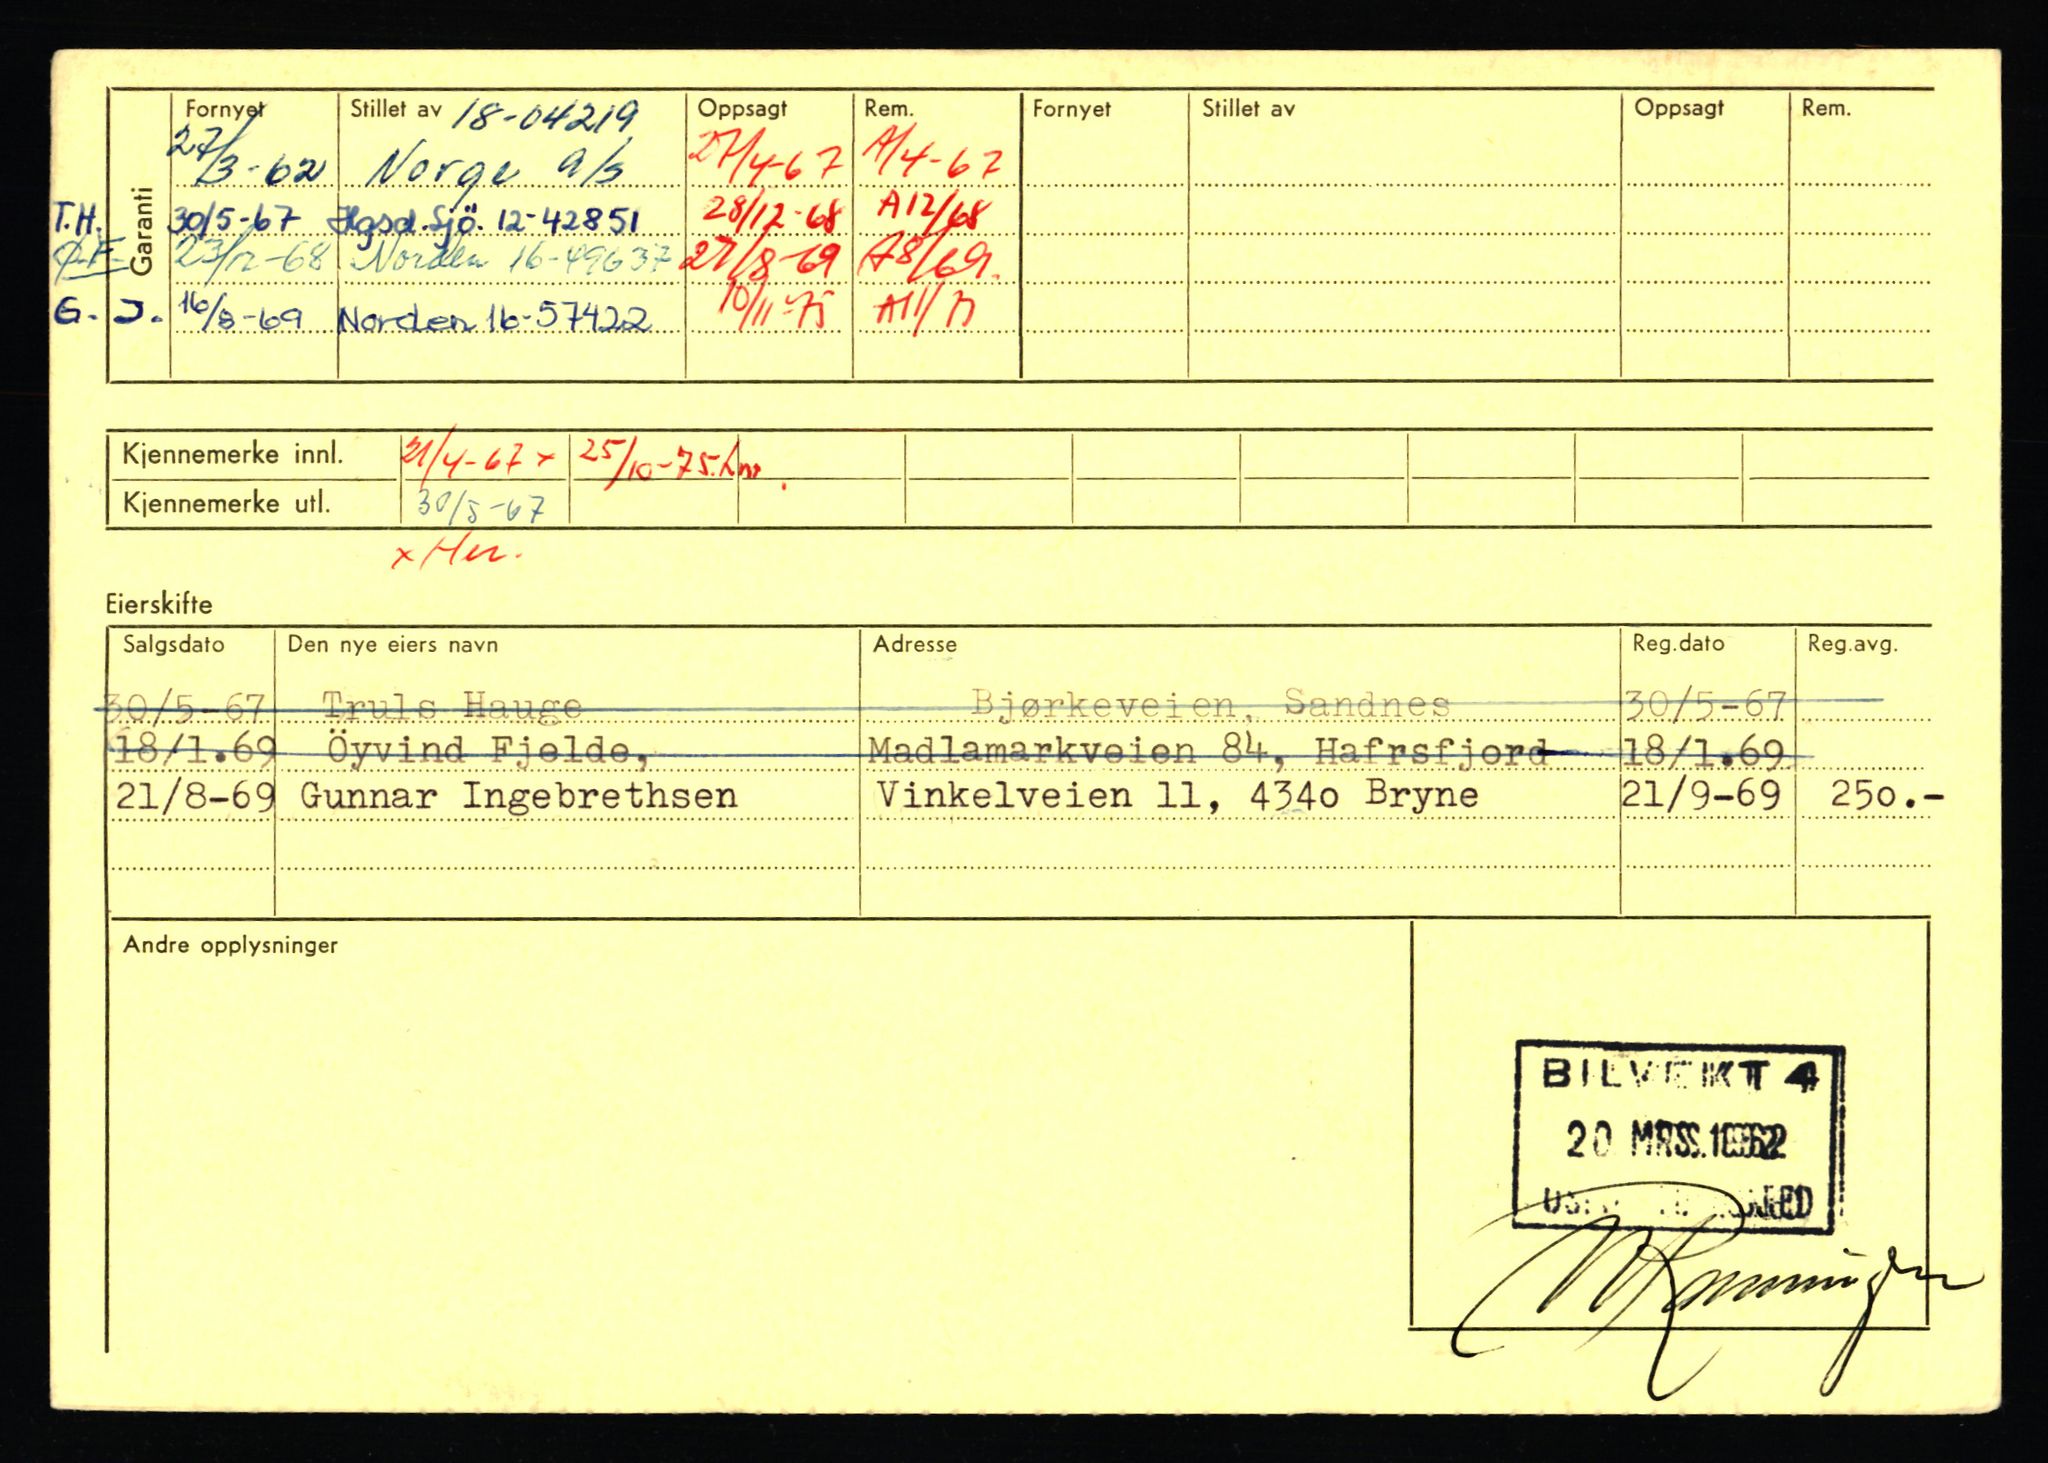 Fornyet Stillet av 18-04219 Oppsagt Rem. Fornyet Stillet av Oppsagt Rem.
Garanti
27/3-62 Norge a/s 27/4-67 A/4-67
T.H. 30/5-67 Hgsd.Sjö. 12-42851 28/12-68 A12/68
Ø.F. 23/12-68 Norden 16-49637 27/8-69 A8/69.
G. J. 16/8-69 Norden 16-57422 10/11-75 A11/75
Kjennemerke innl. 21/4-67 x 25/10-75.
Kjennemerke utl. 30/5-67
x
Eierskifte
Salgsdato Den nye eiers navn Adresse Reg.dato Reg.avg.
30/5-67 Truls Hauge Bjørkeveien, Sandnes 30/5-67
18/1.69 Öyvind Fjelde, Madlamarkveien 84, Hafrsfjord 18/1.69
21/8-69 Gunnar Ingebrethsen Vinkelveien 11, 434o Bryne 21/9-69 25o.-
Andre opplysninger
BILVEKT 4
20 MRS. 1962